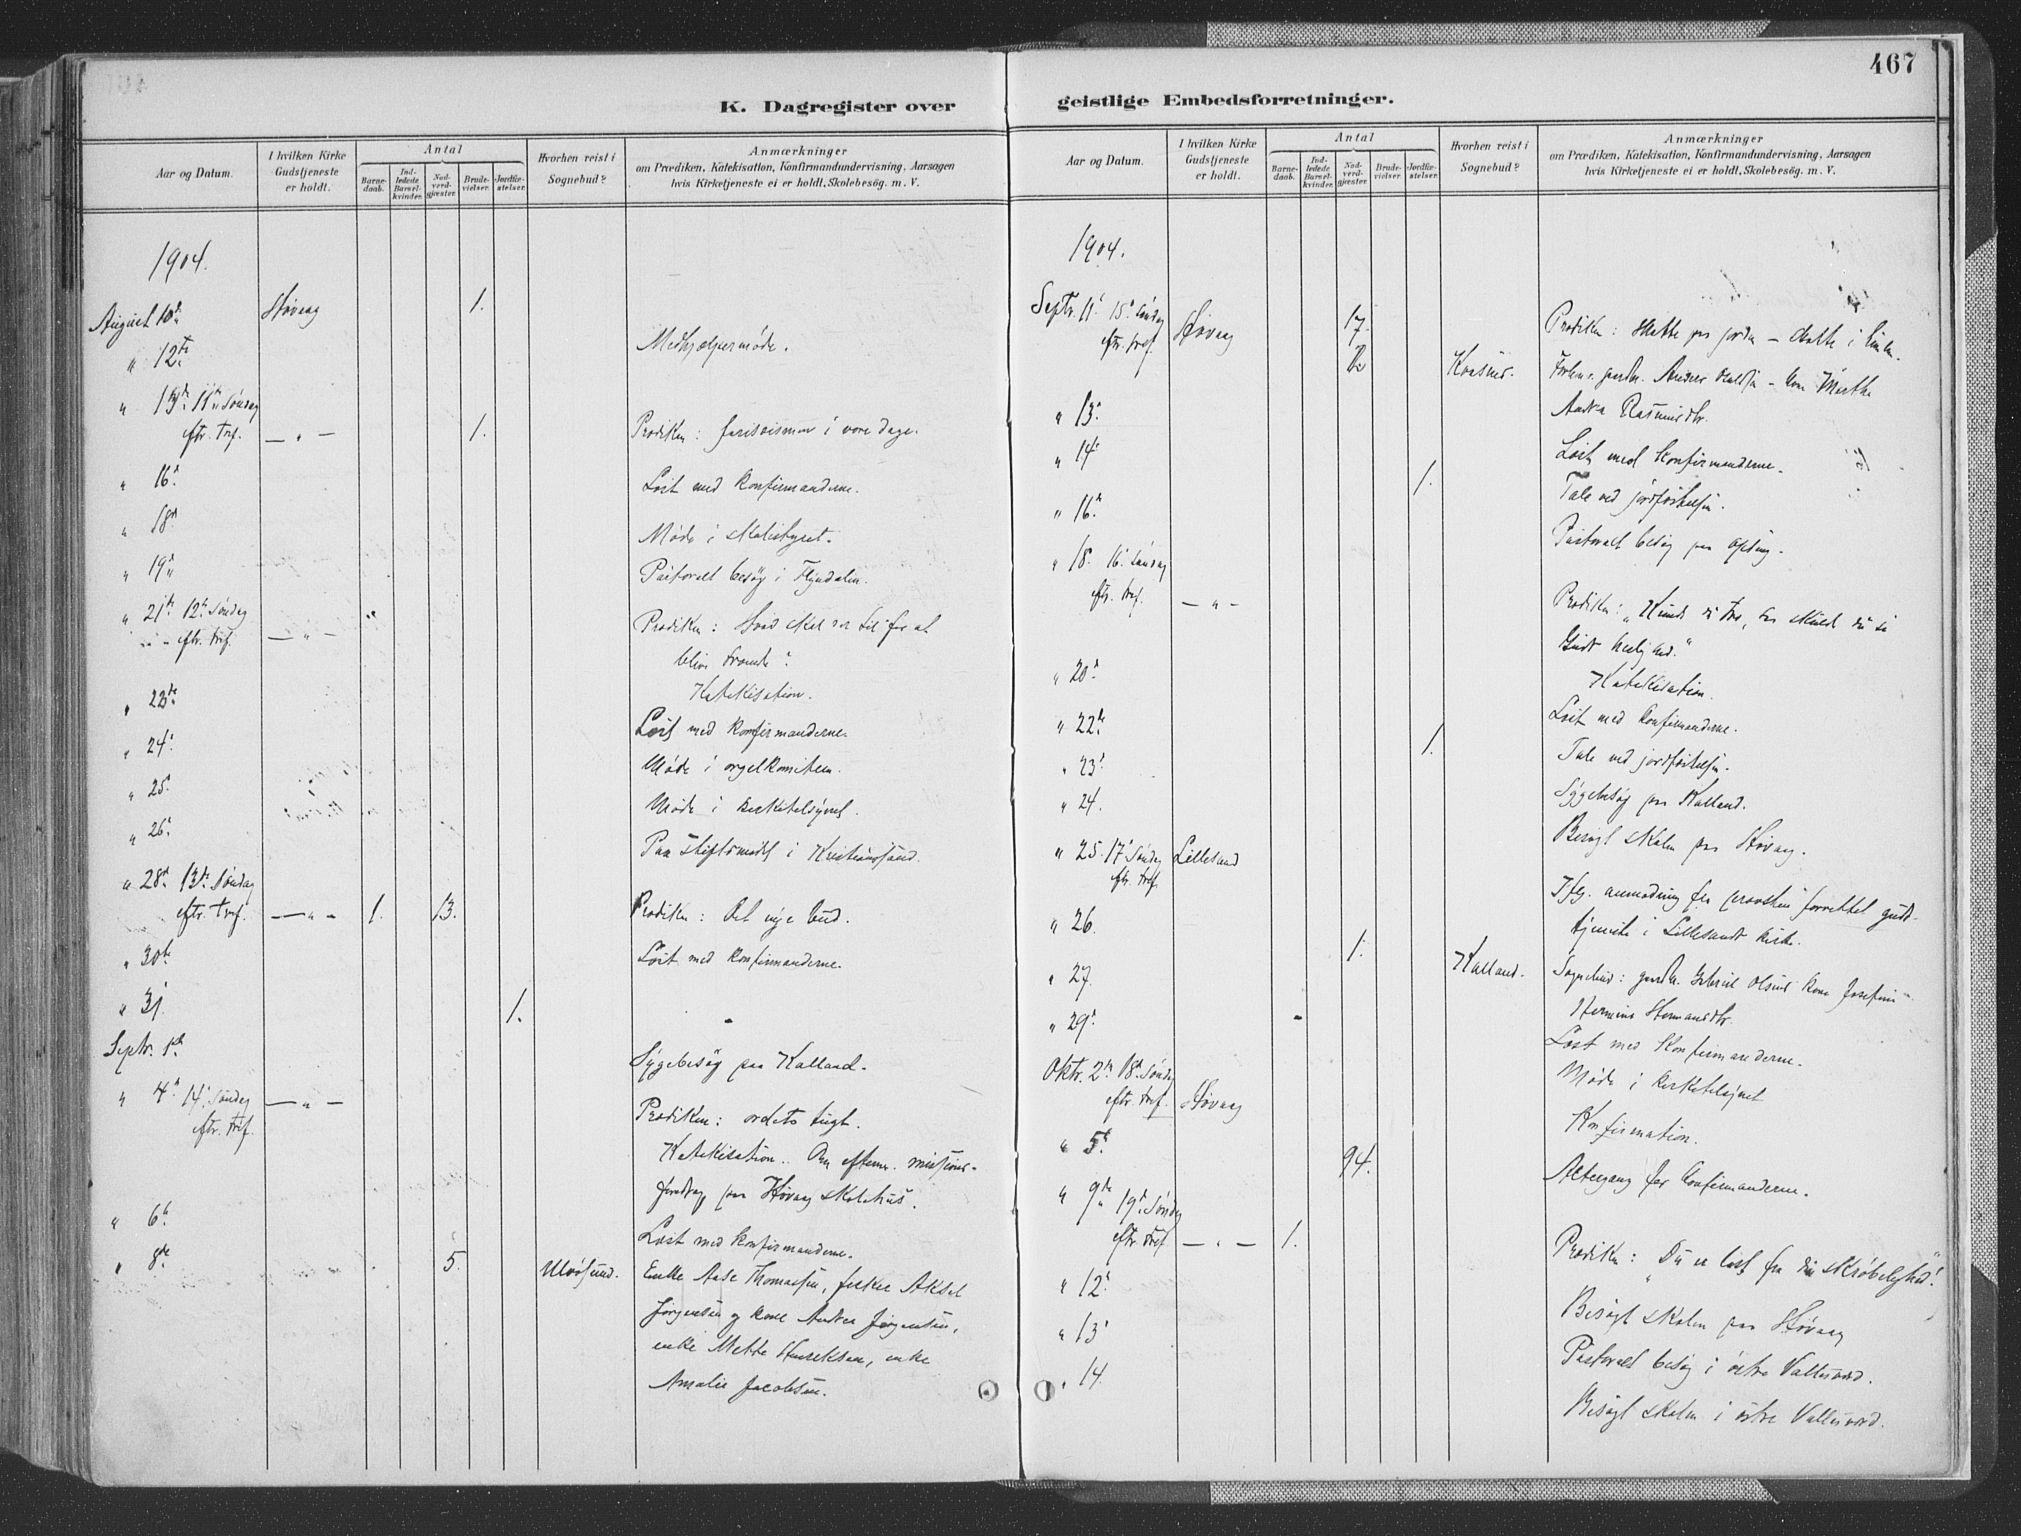 467
K. Dagregister over geistlige Embedsforretninger.
Aar og Datum.
I hvilken Kirke Gudstjeneste er holdt.
Antal
Barnedaab.
Indledede Barselkvinder.
Nadverdgjester.
Brudevielser.
Jordfæstelser.
Hvorhen reist i Sognebud?
Anmærkninger
om Prædiken, Katekisation, Konfirmandundervisning, Aarsagen
hvis Kirketjeneste ei er holdt, Skolebesøg. m. V.
1904.
August 10de Høvaag 1.
" 12te Medhjælpermøde.
" 13de 11te Søndag
eftr. Tref. — " — 1. Prædiken: farisæismen i vore dage.
" 16d Læst med konfirmanderne.
" 18d Møde i skolestyret.
" 19d Pastoralt besøg i Flyndalen.
" 21de 12te Søndag
eftr. tref. — " — Prædiken: Hvad skal der til for at
blive troende?
Katekisation.
" 23de Læst med konfirmanderne.
" 24d Møde i orgelkomiteen.
" 25d Møde i kirketilsynet.
" 26d Paa stiftsmødet i Kristianssand.
" 28d 13de Søndag
eftr. Tref. — " — 1. 13. Prædiken: Det nye bud.
" 30te Læst med konfirmanderne.
" 31. 1.
Septr. 1ste Sygebesøg paa Kalland.
" 4d 14d Søndag — " —
eftr. tref. Prædiken: ordets tugt.
Katekisation. Om efterm. missions-
foredrag paa Høvaag skolehus.
" 6d Læst med konfirmanderne.
" 8de 5. Ulvøsund. Enke Aase Thomassen, fisker Aksel
Jørgensen og kone Andrea Jørgensen,
enke Mette Henriksen, enke
Amalie Jacobsen.
Aar og Datum.
I hvilken Kirke Gudstjeneste er holdt.
Antal
Barnedaab.
Indledede Barselkvinder.
Nadverdgjester.
Brudevielser.
Jordfæstelser.
Hvorhen reist i Sognebud?
Anmærkninger
om Prædiken, Katekisation, Konfirmandundervisning, Aarsagen
hvis Kirketjeneste ei er holdt, Skolebesøg. m. V.
1904.
Septr. 11d 15d Søndag
eftr. tref. Høvaag 17. Prædiken: Skatte paa jorden — skatte i himlen.
2 Kvasnes. Forhv. gaardbr. Anders Olsen — kone Marthe
" 13d Andrea Rasmusdtr.
" 14de Læst med konfirmanderne.
1. Tale ved jordfæstelsen.
" 16d Pastoralt besøg paa
" 18. 16d Søndag
eftr. tref. — " — Prædiken: "Kunde du tro, da skulde du se
Guds herlighed."
" 20d Katekisation.
Læst med konfirmanderne.
" 22de 1. Tale ved jordfæstelsen.
" 23d Sygebesøg paa Kalland.
" 24. Besøgt skolen paa Høvaag.
" 25. 17d Søndag Lillesand
eftr. tref. Ifg. anmodning fra provsten forrettet guds-
" 26. tjeneste i Lillesands kirke.
1. Kalland. Sognebud: gaardbr. Gabriel Olsens kone Josefine
" 27. Hermine Hermansdtr.
" 29d Læst med konfirmanderne.
Oktr. 2de 18d Søndag Møde i kirketilsynet
eftr. tref. Høvaag Konfirmation.
" 5d 94. Altergang for konfirmanderne.
" 9de 19d Søndag
eftr. tref. — " — 1. Prædiken: "Du er løst fra din skrøbelighed".
" 12d Besøgt skolen paa Høvaag
" 13d Pastoralt besøg i østre Vallesverd.
" 14. Besøgt skolen i østre Vallesverd.